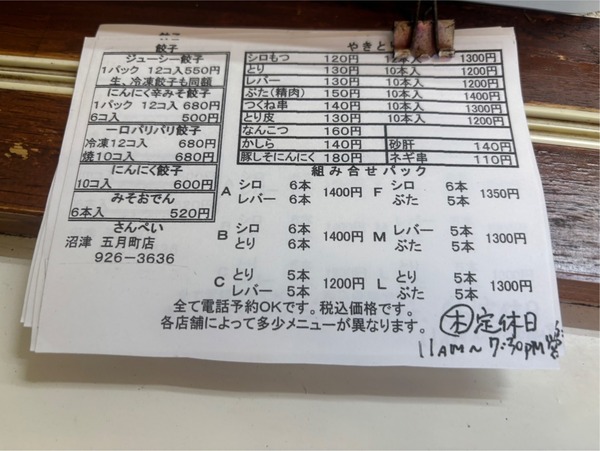 餃子
ジューシー餃子
1パック 12コ入550円
生、冷凍餃子も同額
にんにく辛みそ餃子
1パック 12コ入 680円
6コ入 500円
一口パリパリ餃子
冷凍12コ入 680円
焼10コ入 680円
にんにく餃子
10コ入 600円
みそおでん
6本入 520円
さんぺい
沼津 五月町店
926-3636
やきと
シロもつ 120円 12本入 1300円
とり 130円 10本入 1200円
レバー 130円 10本入 1200円
ぶた(精肉) 150円 10本入 1400円
つくね串 140円 10本入 1300円
とり皮 130円 10本入 1200円
なんこつ 160円
かしら 140円 砂肝 140円
豚しそにんにく 180円 ネギ串 110円
組み合せパック
A シロ 6本 レバー 6本 1400円
F シロ 5本 ぶた 5本 1350円
B シロ 6本 とり 6本 1400円
M レバー 5本 ぶた 5本 1300円
C とり 5本 レバー 5本 1200円
L とり 5本 ぶた 5本 1300円
全て電話予約OKです。税込価格です。
各店舗によって多少メニューが異なります。
木定休日
11AM～7:30PM